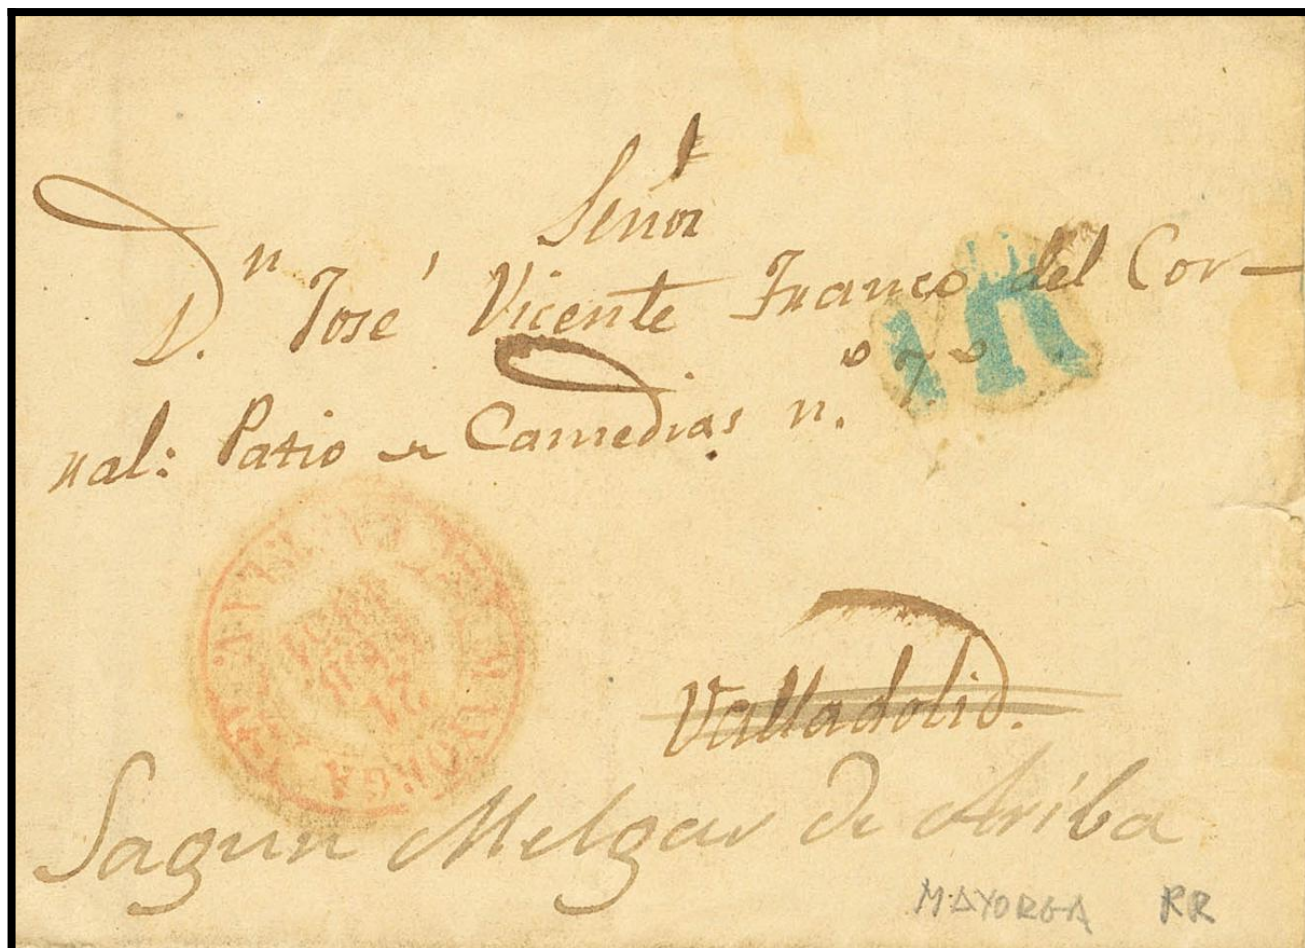 Señor
Dn. José Vicente Franco del Cor-
ral: Patio de Camedias n.º 7º
1R
Valladolid.
Sagun Melgar de Ariba
MAYORGA RR